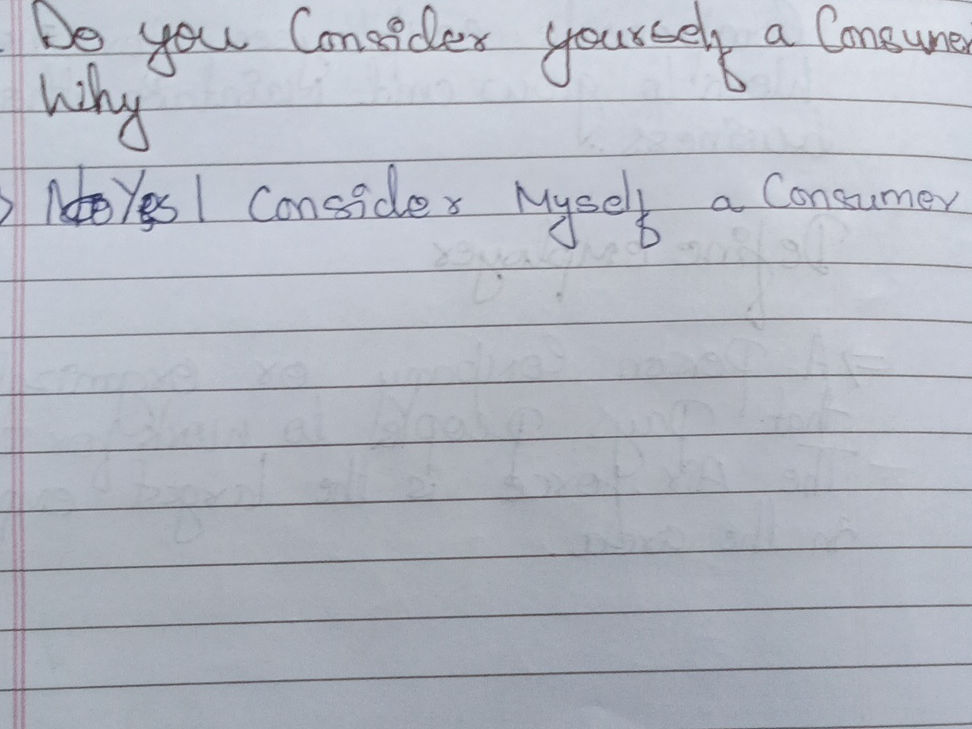 Do you Consider yourself a Consumer
Why
Yes I Consider Myself a Consumer